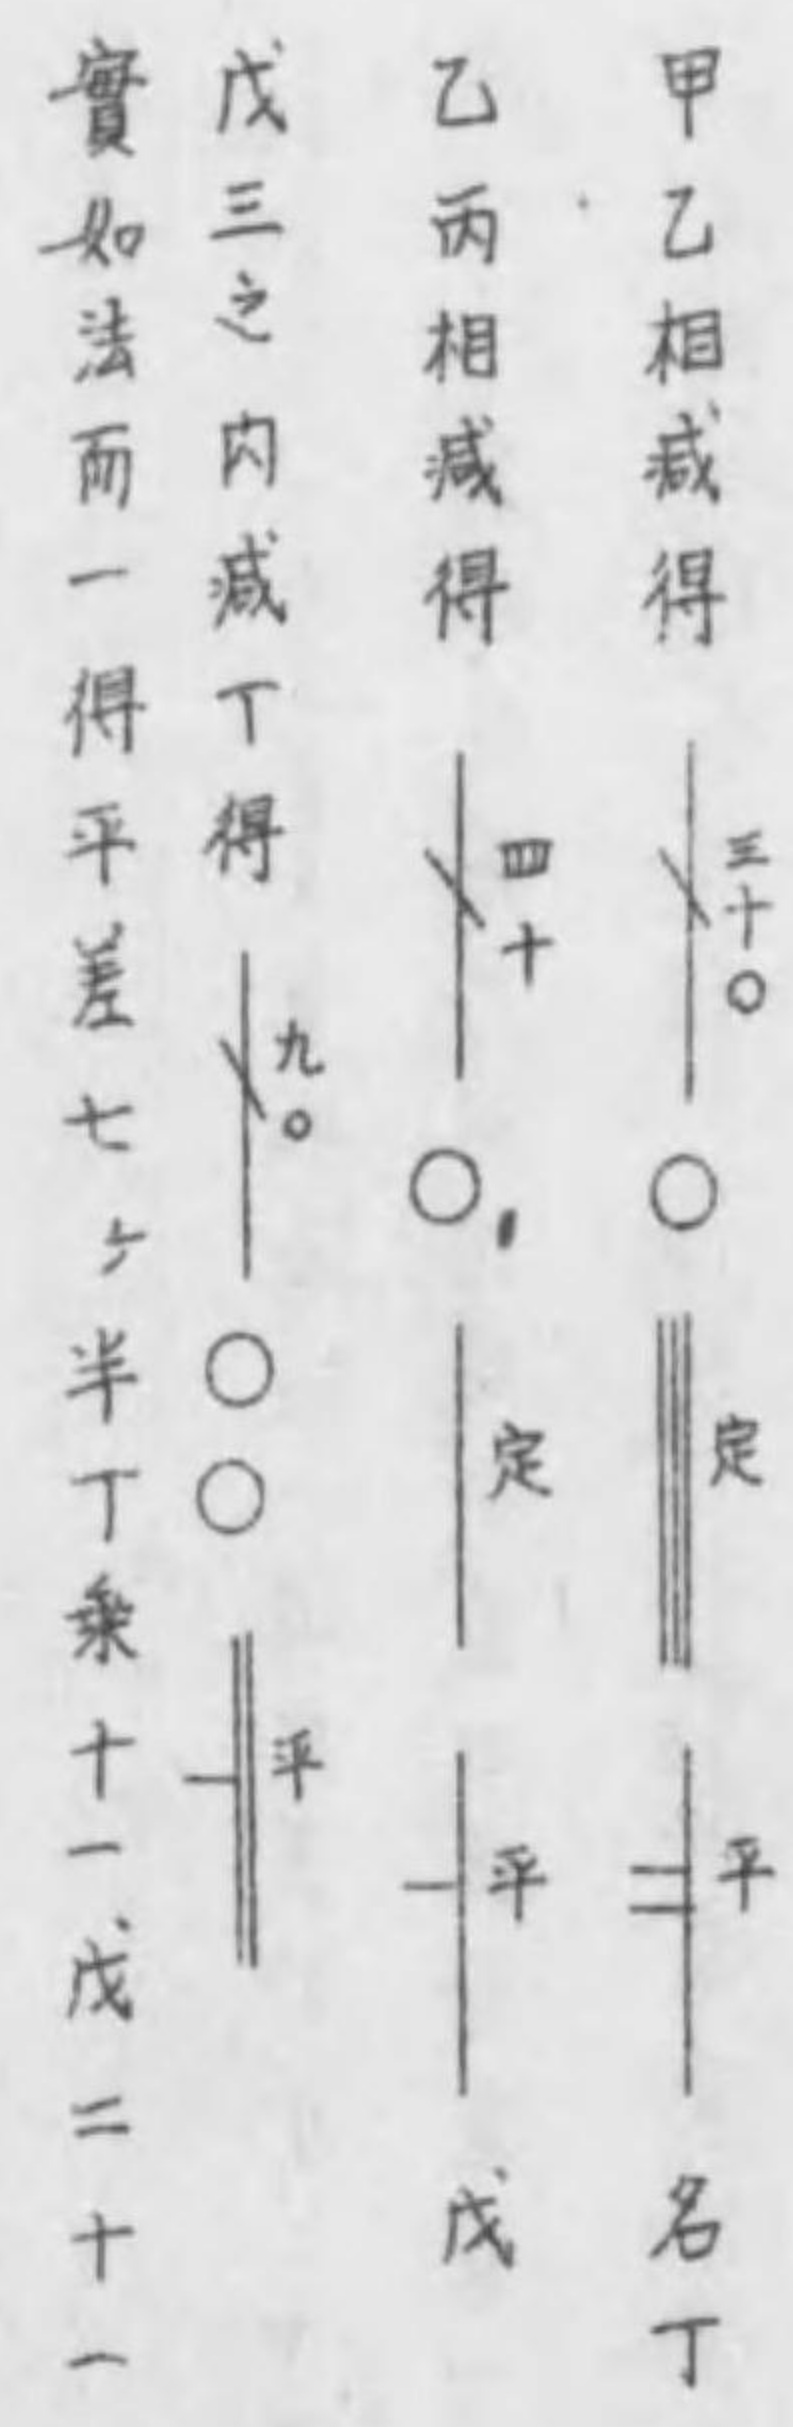 甲乙相减得 三十〇 〇 定 平 名丁
乙丙相減得 四十 〇 定 平 戊
戊三之内減丁得 九〇 〇〇 平
實如法而一得平差七ケ半丁乗十一戊二十一